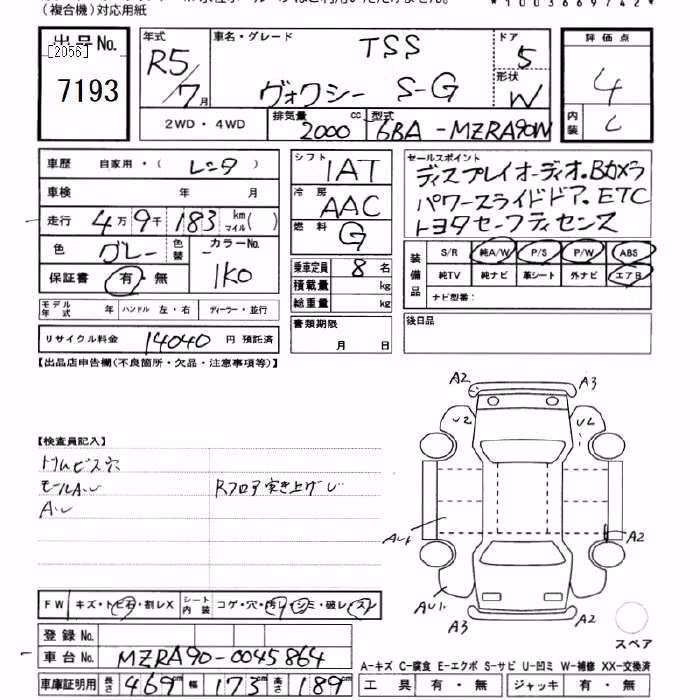 (複合機)対応用紙
*1003669742*
出品No. [2056] 7193
年式 R5/7月
車名・グレード TSS ヴォクシー S-G
ドア 5 形状 W
評価点 4 内装 C
2WD・4WD 排気量 2000 cc 型式 6BA-MZRA90W
車歴 自家用・(レンタ)
車検 年 月
走行 4万9千183 km マイル( )
色 グレー 色替 カラーNo. 1K0
保証書 有・無
モデル年式 年 ハンドル 左・右 ディーラー・並行
リサイクル料金 14040 円 預託済
シフト 1AT
冷房 AAC
燃料 G
乗車定員 8 名
積載量 kg
総重量 kg
書類期限 月 日
セールスポイント
ディスプレイオーディオ.Bカメラ
パワースライドドア.ETC
トヨタセーフティセンス
装備品 S/R 純A/W P/S P/W ABS
純TV 純ナビ 革シート 外ナビ エアB
ナビ型番:
後日品
【出品店申告欄(不良箇所・欠品・注意事項等)】
【検査員記入】
トリムビス穴
モールAU
Rフロア突き上げU
AU
A2 A3
U2 UL
AU4 A2
AU1
A3 A2
スペア
FW キズ・トビ石・割レX シート内装 コゲ・穴・汚レ・シミ・破レ・スレ
登録No.
車台No. MZRA90-0045864
車庫証明用 長さ 469cm 幅 173cm 高さ 189cm
A-キズ C-腐食 E-エクボ S-サビ U-凹ミ W-補修 XX-交換済
工具 有・無 ジャッキ 有・無